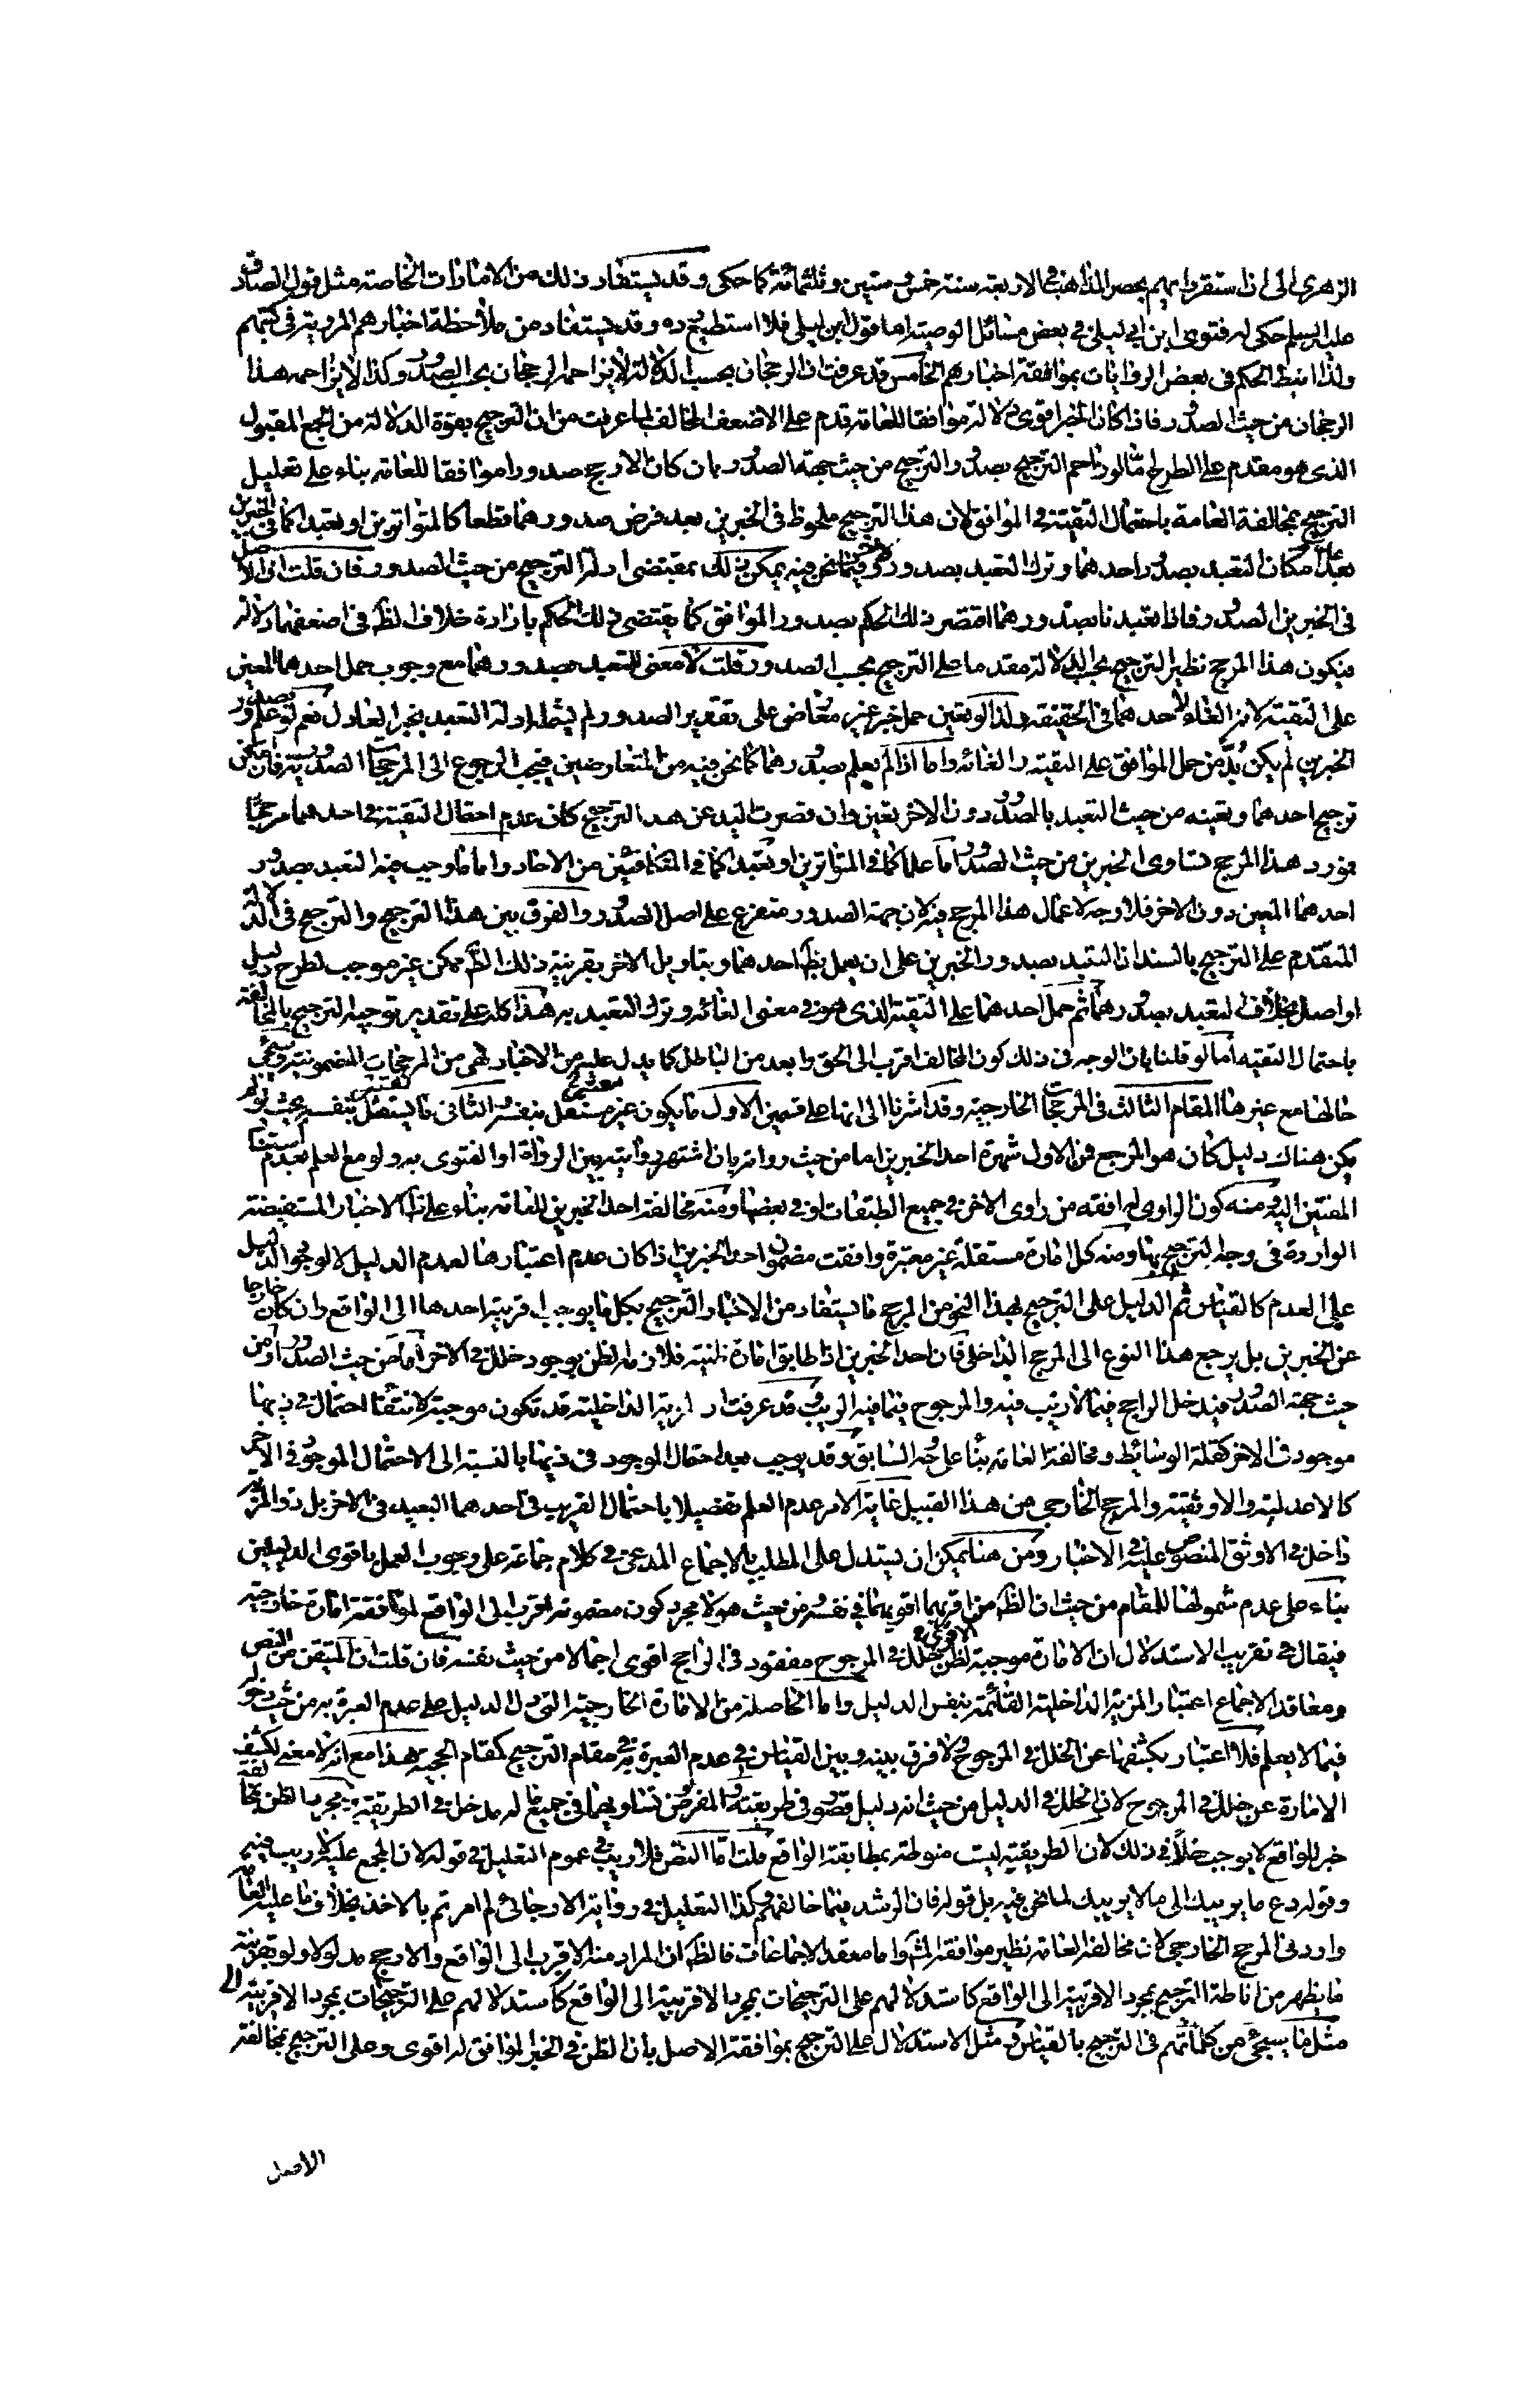 الزهري الى ان استقر رايهم بحصر المذاهب في الاربعة سنة خمس وستين وثلثمائة كما حكى وقد يستفاد ذلك من الامارات الخاصة مثل قول الصادق
عليه السلم حكى له فتوى ابن ابي ليلى في بعض مسائل الوصية اما قول ابن ليلى فلا استطيع رده وقد يستفاد من ملاحظة اخبارهم المروية في كتبهم
ولذا انيط الحكم في بعض الروايات بموافقة اخبارهم الخامس قد عرفت ان الرجحان بحسب الدلالة لا يزاحمه الرجحان بحسب الصدور وكذا لا يزاحمه هذا
الرجحان من حيث الصدور فاذا كان الخبر اقوى دلالة موافقا للعامة قدم على الاضعف المخالف لما عرفت من ان الترجيح بقوة الدلالة من الجمع المقبول
الذي هو مقدم على الطرح امّا لو زاحم الترجيح بصدور الترجيح من حيث جهة الصدور بان كان الارجح صدورا موافقا للعامة بناء على تعليل
الترجيح بمخالفة العامة باحتمال التقية في الموافق لان هذا الترجيح ملحوظ في الخبرين بعد فرض صدورهما قطعا كالمتواترين او تعبدا كما في الخبرين
بعد عدم امكان التعبد بصدور احدهما وترك التعبد بصدور الاخر وفيما نحن فيه يمكن ذلك بمقتضى ادلة الترجيح من حيث الصدور فان قلت ان الاصل
في الخبرين الصدور فاذا تعبدنا بصدورهما اقتضى ذلك الحكم بصدور الموافق كما يقتضي ذلك الحكم بارادة خلاف الظ في اضعفهما دلالة
فيكون هذا المرجح نظير الترجيح بحسب الدلالة مقدما على الترجيح بحسب الصدور قلت لا معنى للتعبد بصدورهما مع وجوب حمل احدهما المعين
على التقية لانه الغاء لاحدهما في الحقيقة ولذا لو تعين حمل خبر غير معارض على تقدير الصدور لم يشمله ادلة التعبد بخبر العادل نعم لو علم بصدور
الخبرين لم يكن بُدّ من حمل الموافق على التقية والغائه واما اذا لم يعلم بصدورهما كما نحن فيه من المتعارضين فيجب الرجوع الى المرجحات الصدورية فان امكن
ترجيح احدهما وتعيّنه من حيث التعبد بالصدور دون الاخر تعين وان قصرت اليد عن هذا الترجيح كان عدم احتمال التقية في احدهما مرجحا
فورد هذا المرجح تساوى الخبرين من حيث الصدور اما علما كما في المتواترين او تعبدا كما في المتكافئين من الاخار واما ما وجب فيه التعبد بصدور
احدهما المعين دون الاخر فلا وجه لاعمال هذا المرجح فيه لان جهة الصدور متفرع على اصل الصدور والفرق بين هذا الترجيح والترجيح في الدلالة
المتقدم على الترجيح بالسند ان التعبد بصدور الخبرين على ان يعمل بظ احدهما وبتاويل الاخر بقرينة ذلك الظ ممكن غير موجب لطرح دليل
او اصل بخلاف التعبد بصدورهما ثم حمل احدهما على التقية الذي هو في معنى الغائه وترك التعبد به هذا كله على تقدير توجيه الترجيح بالمخالفة
باحتمال التقيه اما لو قلنا بان الوجه في ذلك كون المخالف اقرب الى الحق وابعد من الباطل كما يدل عليه من الاخبار فهي من المرجحات المضمونية وسيجئ
حالها مع غيرها المقام الثالث في المرجحات الخارجية وقد اشرنا الى انها على قسمين الاول ما يكون غير مستقل بنفسه الثاني ما يستقل بنفسه بحيث لو لم
يكن هناك دليل كان هو المرجع فمن الاول شهرة احد الخبرين اما من حيث روايته بان اشتهر روايته بين الرواة او الفتوى به ولو مع العلم بعدم استناد
المفتين اليه ومنه كون الراوى له افقه من راوى الاخر في جميع الطبقات او في بعضها ومنه مخالفة احد الخبرين للعامة بناء على ظ الاخبار المستفيضة
الواردة في وجه الترجيح بها ومنه كل امارة مستقلة غير معتبرة وافقت مضمون احد الخبرين اذا كان عدم اعتبارها لعدم الدليل لا لوجود الدليل
على العدم كالقياس ثم الدليل على الترجيح بهذا النحو من المرجح ما يستفاد من الاخبار الترجيح بكل ما يوجب اقربية احدهما الى الواقع وان كان خارجا
عن الخبرين بل يرجع هذا النوع الى المرجح الداخلي فان احد الخبرين اذا طابق امارة ظنية فلازمه الظن بوجود خلل في الاخر اما من حيث الصدور او من
حيث جهة الصدور فيدخل الراجح فيما لا ريب فيه والمرجوح فيما فيه الريب وقد عرفت ان المزية الداخلية قد تكون موجبة لانتفاء احتمال في ذيها
موجود في الاخر كقلة الوسائط ومخالفة العامة بناء على وجه السابق وقد يوجب بعد احتمال الموجود في ذيها بالنسبة الى الاحتمال الموجود في الاخر
كالاعدلية والاوثقية والمرجح الخارجي من هذا القبيل غاية الامر عدم العلم تفصيلا باحتمال القريب في احدهما البعيد في الاخر بل ذو المزية
داخل في الاوثق المنصوص عليه في الاخبار ومن هنا يمكن ان يستدل على المطلب بالاجماع المدعى في كلام جماعة على وجوب العمل باقوى الدليلين
بناء على عدم شمولها للمقام من حيث ان الظ من اقربهما اقويهما في نفسه من حيث هو لا مجرد كون مضمونه اقرب الى الواقع لموافقة امارة خارجية
فيقال في تقريب الاستدلال ان الامارة موجبة لظن خلل في المرجوح مفقود في الراجح اقوى اجمالا من حيث نفسه فان قلت ان المتيقن من النص
ومعاقد الاجماع اعتبار المزية الداخلية القائمة بنفس الدليل واما الحاصلة من الامارة الخارجية التي دل الدليل على عدم العبرة به من حيث دخوله
فيما لا يعلم فلا اعتبار بكشفها عن الخلل في المرجوح ولا فرق بينه وبين القياس في عدم العبرة به في مقام الترجيح كمقام الحجية هذا مع انه لا معنى لكشف
الامارة عن خلل في المرجوح لان الخلل في الدليل من حيث انه دليل قصور في طريقته والمفروض تساويهما في جميع ما له مدخل في الطريقية ومجرد الظن بمخالفة
خبر للواقع لا يوجب خللاً في ذلك لان الطريقية ليست منوطة بمطابقة الواقع قلت امّا النص فلا ريب في عموم التعليل في قوله لان المجمع عليه لا ريب فيه
وقوله دع ما يريبك الى ما لا يريبك لما نحن فيه بل قوله فان الرشد فيما خالفهم وكذا التعليل في رواية الارجائى لم امرتم بالاخذ بخلاف ما عليه العامة
وارد في المرجح الخارجي لان مخالفة العامة نظير موافقة المشهور واما معقد الاجماعات فالظ ان المراد منه الاقرب الى الواقع والارجح مدلولا ولو بقرينة
ما يظهر من اناطة الترجيح بمجرد الاقربية الى الواقع كاستدلالهم على الترجيحات بمجرد الاقربية الى الواقع كاستدلالهم على الترجيحات بمجرد الاقربية الى
مثل ما سيجئ من كلماتهم في الترجيح بالقياس ومثل الاستدلال على الترجيح بموافقة الاصل بان الظن في الخبر الموافق له اقوى وعلى الترجيح بمخالفة
الاصل